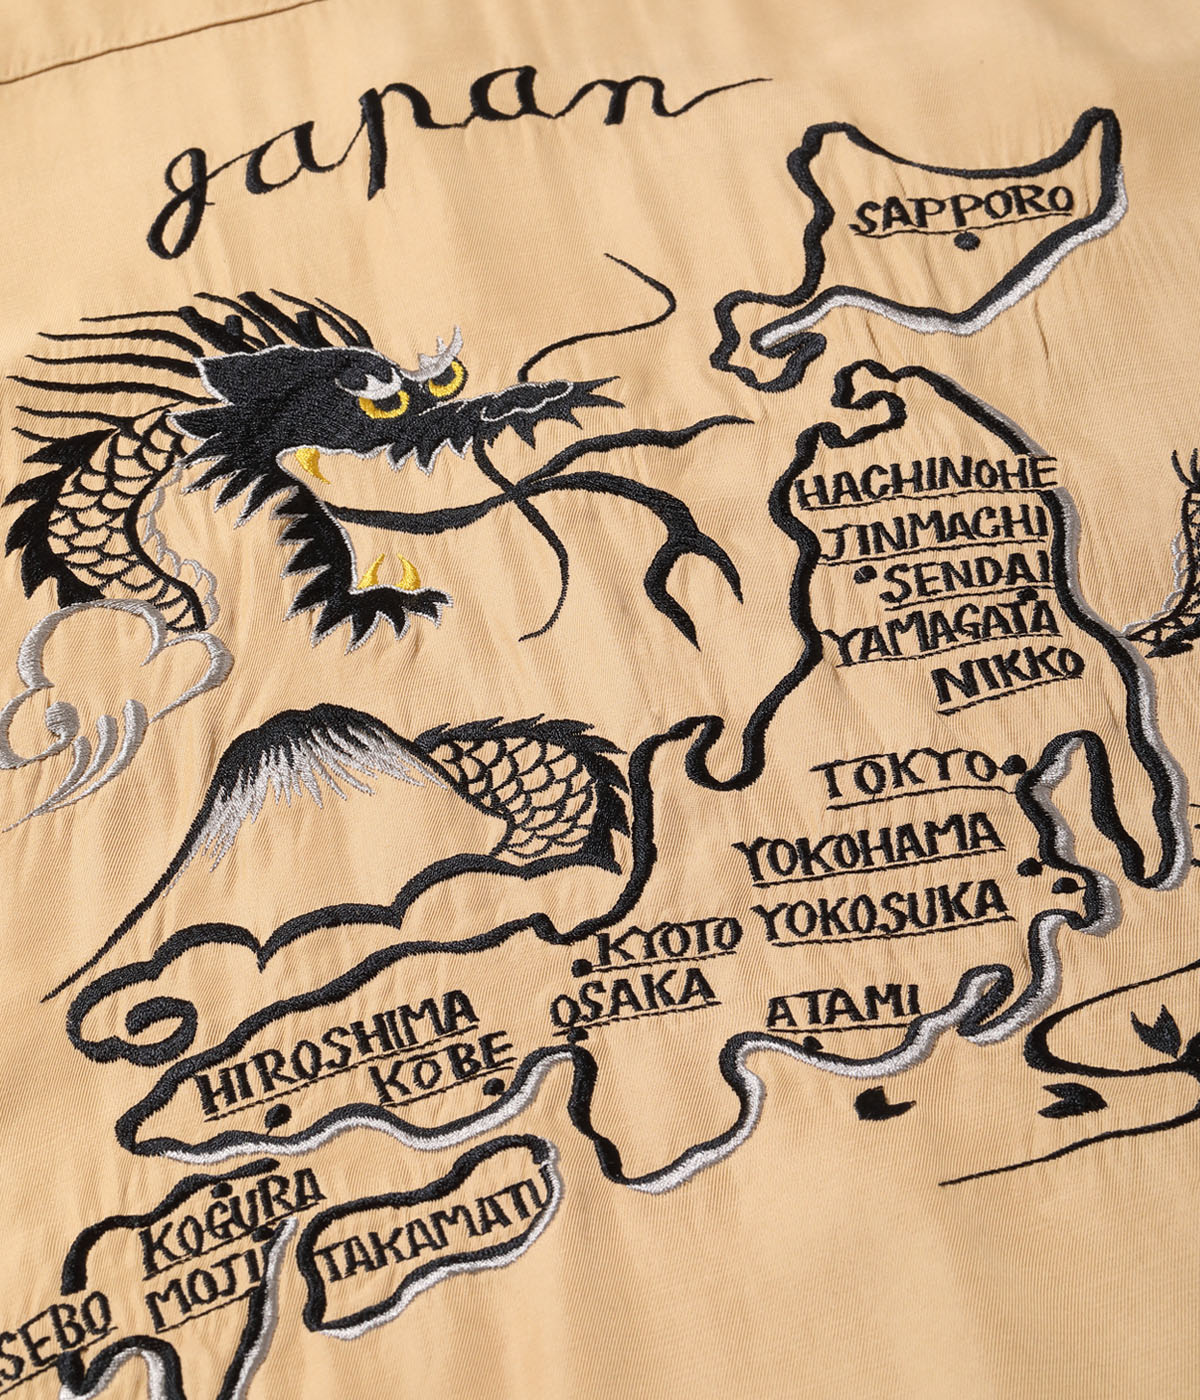 Japan
SAPPORO
HACHINOHE
JINMACHI
SENDAI
YAMAGATA
NIKKO
TOKYO
YOKOHAMA
YOKOSUKA
KYOTO
OSAKA
ATAMI
HIROSHIMA
KOBE
KOGURA
TAKAMATU
MOJI
SEBO